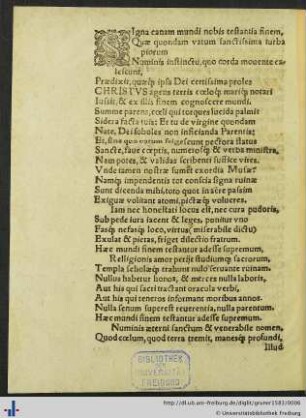 SIgna canam mundi nobis testantia finem,
Quæ quondam vatum sanctissima turba
piorum
Numinis instinctu, quo corda mouente ca
lescunt,
Prædixit, quæq́; ipsa Dei certissima proles
CHRISTVS agens terris cœloq́; mariq́; notari
Iussit, & ex illis finem cognoscere mundi.
Summe parens, cœli qui torques lucida palmis
Sidera facta tuis: Et tu de virgine quondam
Nate, Dei soboles non inficianda Parentis:
Et, sine quo vatum frigescunt pectora flatus
Sancte, faue cœptis, numerosq́; & verba ministra,
Nam potes, & validas scribenti suffice vires.
Vnde tamen nostræ sumet exordia Musæ?
Namq́; impendentis tot conscia signa ruinæ
Sunt dicenda mihi, toto quot in aëre passim
Exiguæ volitant atomi, pictæq́; volucres.
Iam nec honestati locus est, nec cura pudoris,
Sub pede iura iacent & leges, ponitur vno
Fasq́; nefasq́; loco, virtus (miserabile dictu)
Exulat & pietas, friget dilectio fratrum.
Hæc mundi finem testantur adesse supremum.
Relligionis amor perijt studiumq́; sacrorum,
Templa scholæq́; trahunt nullo seruante ruinam.
Nullus habetur honos, & merces nulla laboris,
Aut his qui sacri tractant oracula verbi,
Aut his qui teneros informant moribus annos.
Nulla senum superest reuerentia, nulla parentum.
Hæc mundi finem testantur adesse supremum.
Numinis æterni sanctum & venerabile nomen,
Quod cœlum, quod terra tremit, manesq́; profundi,
Illud
BIBLIOTHEK
DER
UNIVERSITÄT
FREIBURG
http://dl.ub.uni-freiburg.de/diglit/gruner1582/0006
© Universitätsbibliothek Freiburg